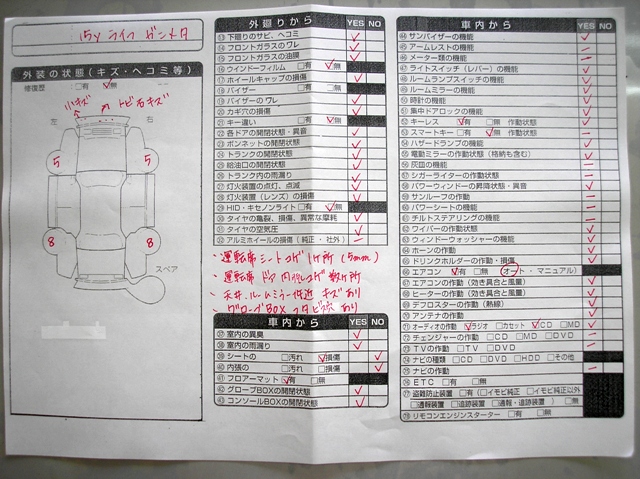 15y ライフ ガンメタ
外装の状態(キズ・ヘコミ等)
修復歴 : □有 ☑無
小キズ
トビ石キズ
左 右
5 5
8 8
スペア
外廻りから YES NO
⑬下廻りのサビ、ヘコミ ✓
⑭フロントガラスのワレ ✓
⑮フロントガラスの油膜 ✓
⑯ウインドーフィルム □有 ☑無
⑰ホイールキャップの損傷 ✓
⑱バイザー □有 □無
⑲バイザーのワレ ✓
⑳カギ穴の損傷 ✓
㉑キー違い □有 ☑無
㉒各ドアの開閉状態・異音 ✓
㉓ボンネットの開閉状態 ✓
㉔トランクの開閉状態 ✓
㉕給油口の開閉状態 ✓
㉖トランク内の雨漏り ✓
㉗灯火装置の点灯、点滅 ✓
㉘灯火装置(レンズ)の損傷 ✓
㉙HID・キセノンライト □有 ☑無
㉚タイヤの亀裂、損傷、異常な摩耗 ✓
㉛タイヤの空気圧 ✓
㉜アルミホイールの損傷(純正・社外) −
・運転席シートコゲ 1ヶ所 (5mm)
・運転席 ドア内張コゲ 数ヶ所
・天井、ルームミラー付近 キズあり
・グローブBOX フタビス あり
車内から YES NO
㊲室内の異臭 ✓
㊳室内の雨漏り ✓
㊴シートの □汚れ ☑損傷 ✓
㊵内張の □汚れ □損傷 ✓
㊶フロアーマット ☑有 □無
㊷グローブBOXの開閉状態 ✓
㊸コンソールBOXの開閉状態 ✓
車内から YES NO
㊹サンバイザーの機能 ✓
㊺アームレストの機能 −
㊻メーター類の機能 ✓
㊼ライトスイッチ(レバー)の機能 ✓
㊽ルームランプスイッチの機能 ✓
㊾ルームミラーの機能 ✓
㊿時計の機能 ✓
51集中ドアロックの機能 ✓
52キーレス ☑有 □無 作動状態 ✓
53スマートキー □有 ☑無 作動状態 −
54ハザードランプの機能 ✓
55電動ミラーの作動状態(格納も含む) ✓
56灰皿の機能 −
57シガーライターの作動状態 ✓
58パワーウィンドーの昇降状態・異音 ✓
59サンルーフの作動 −
60パワーシートの機能 −
61チルトステアリングの機能 −
62ワイパーの作動状態 ✓
63ウィンドーウォッシャーの機能 ✓
64ホーンの作動 ✓
65ドリンクホルダーの作動・損傷 ✓
66エアコン ☑有 □無 (オート・マニュアル)
67エアコンの作動(効き具合と風量) ✓
68ヒーターの作動(効き具合と風量) ✓
69デフロスターの作動(熱線) ✓
70アンテナの作動 ✓
71オーディオの作動 ☑ラジオ □カセット ☑CD □MD ✓
72チェンジャーの作動 □CD □MD □DVD −
73TVの作動 □TV □DVD −
74ナビの種類 □CD □DVD □HDD □その他
75ナビの作動 −
76ETC □有 □無
77盗難防止装置 □有 (□イモビ純正 □イモビ純正以外
□通報装置 □追跡装置 □通報・追跡装置) □無
78リモコンエンジンスターター □有 □無